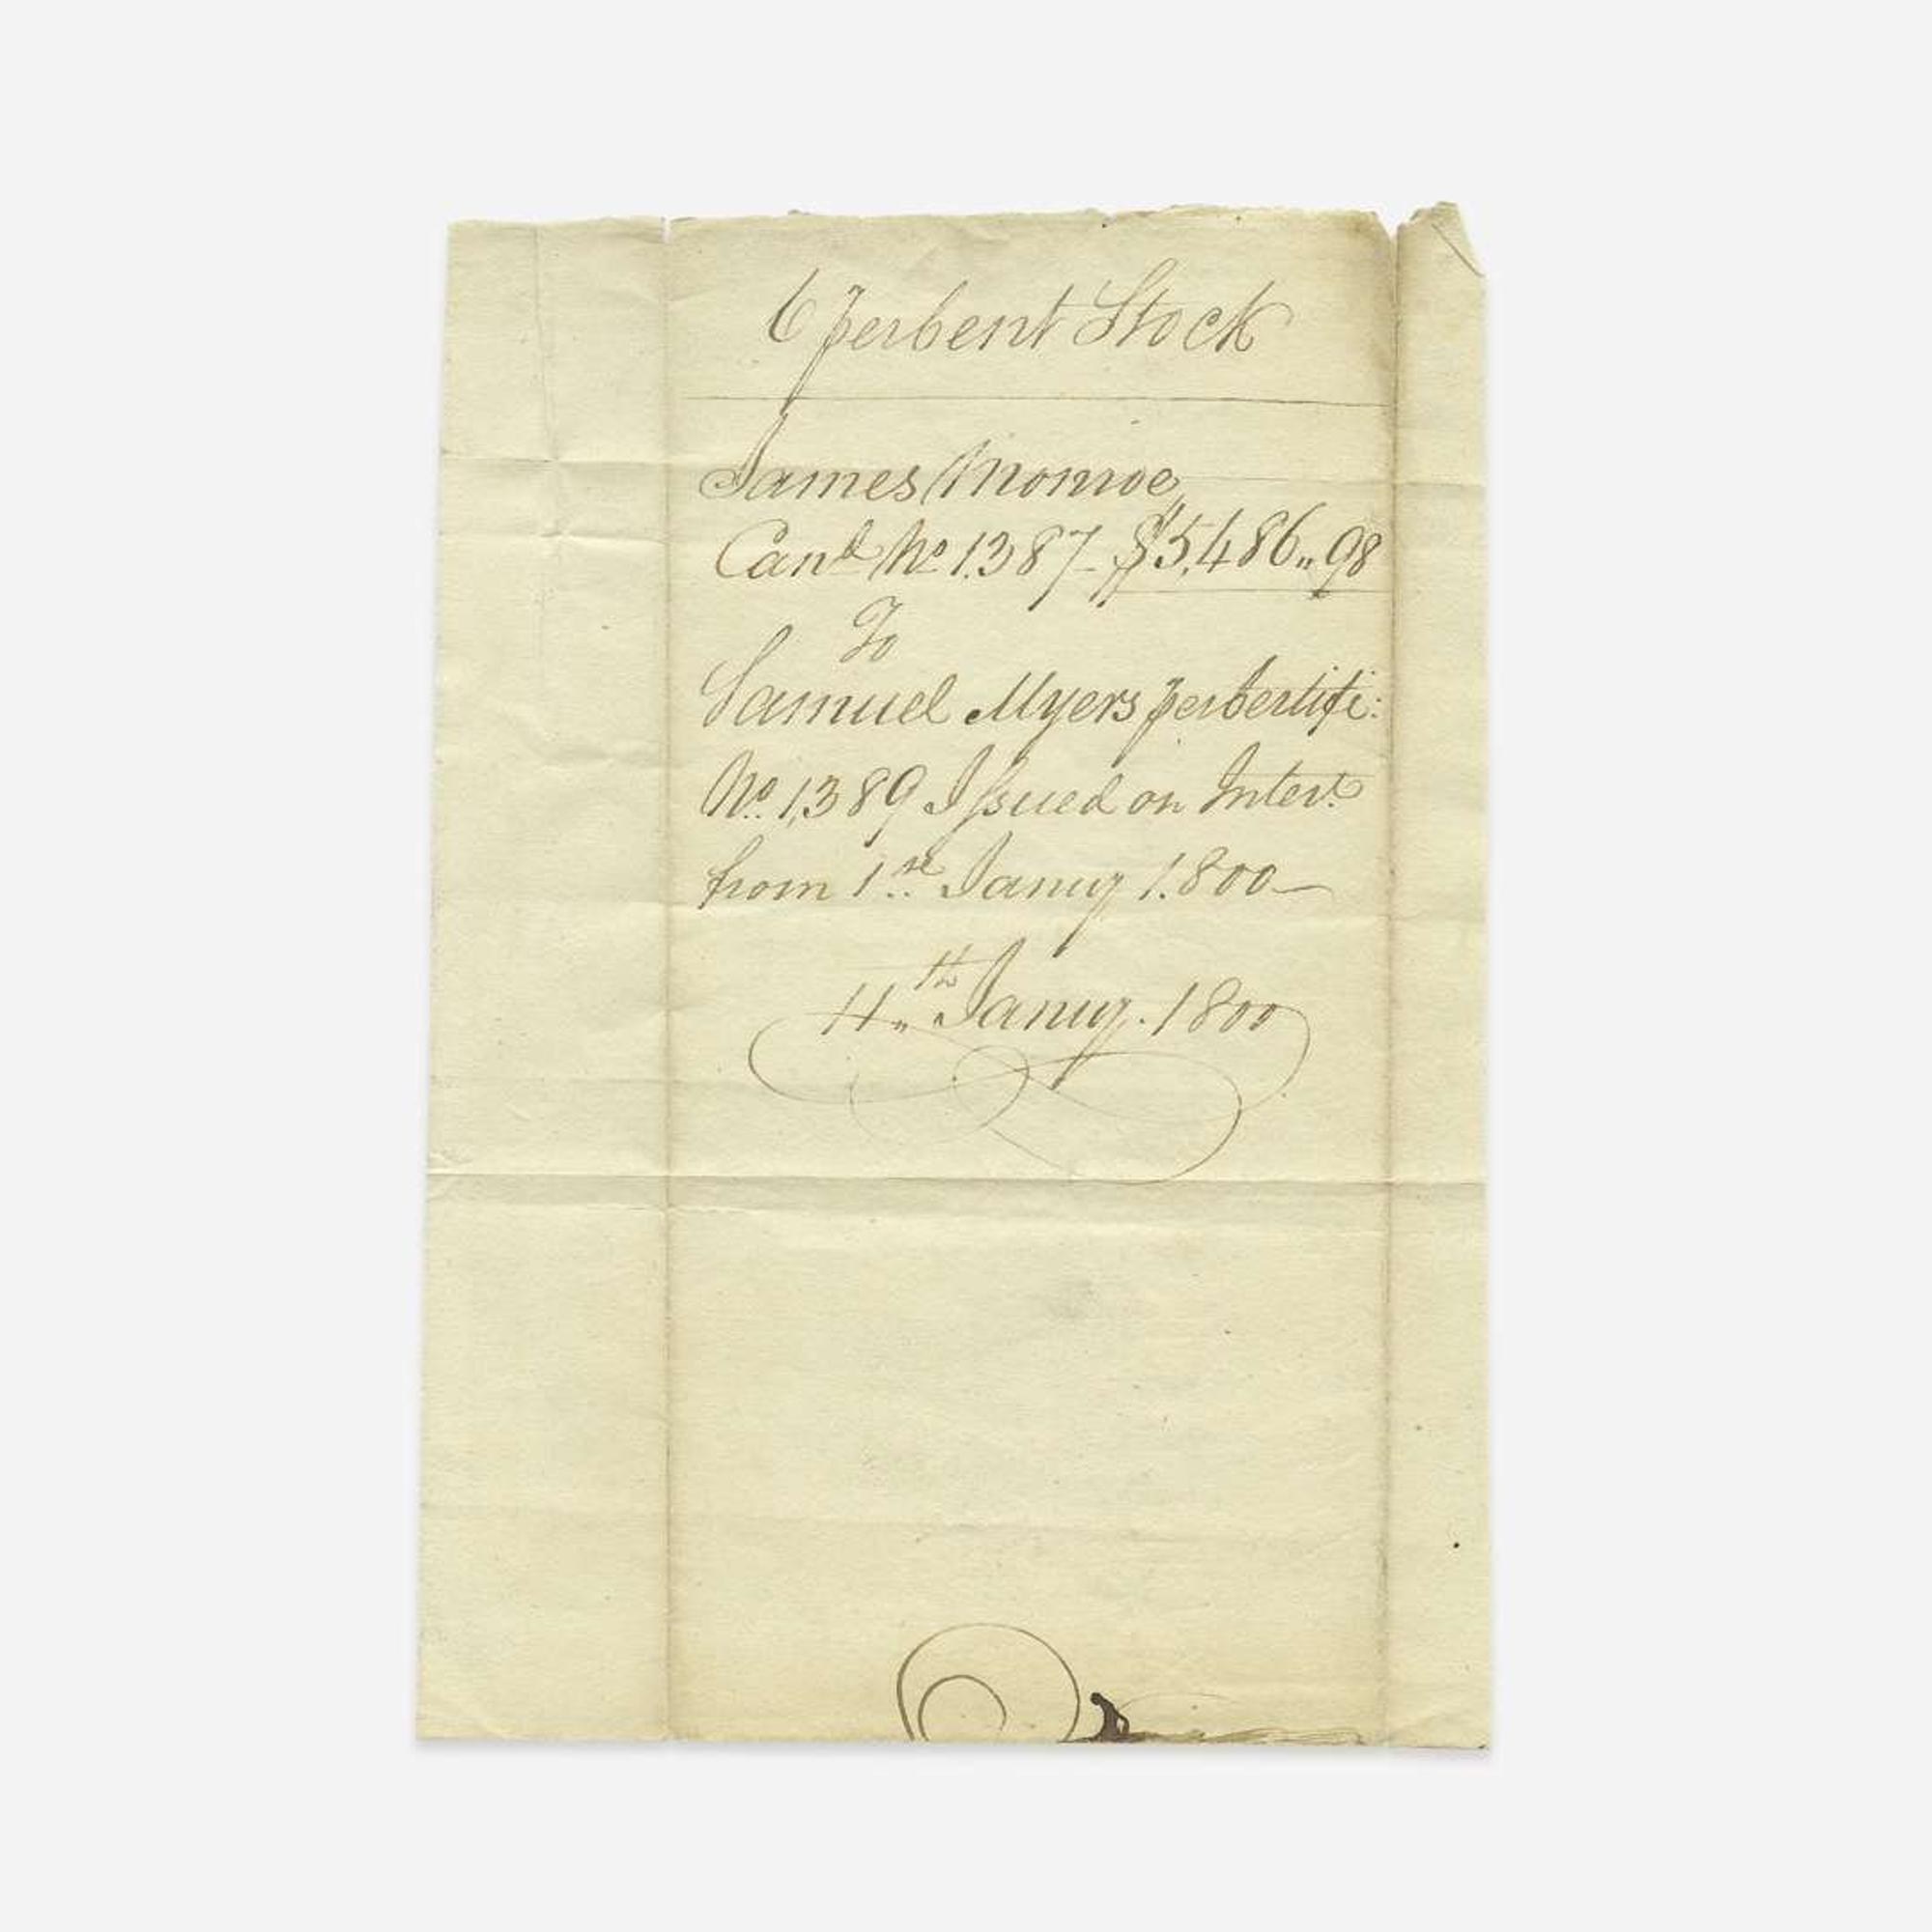 6 perCent Stock
James Monroe
Cand No 1387 - $5,486,,98
To
Samuel Myers perCertifi:
No. 1,389 Issued on Intert.
from 1st Januy 1.800 —
11th Januy. 1800